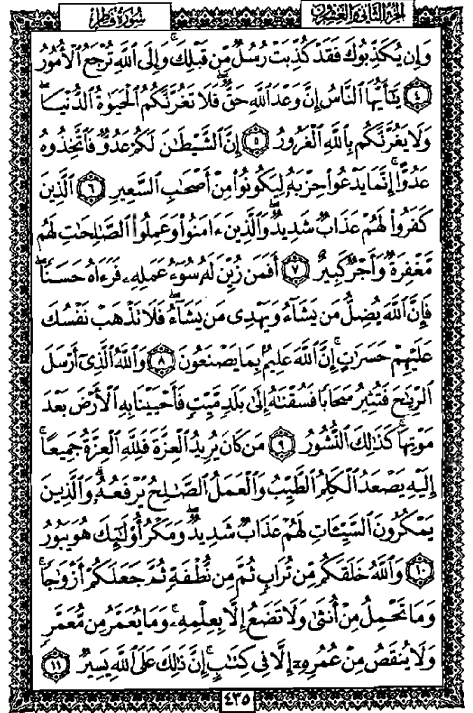 الجزء الثاني والعشرون
سورة فاطر
وَإِن يُكَذِّبُوكَ فَقَدْ كُذِّبَتْ رُسُلٌ مِّن قَبْلِكَ ۚ وَإِلَى ٱللَّهِ تُرْجَعُ ٱلْأُمُورُ
٤ يَٰٓأَيُّهَا ٱلنَّاسُ إِنَّ وَعْدَ ٱللَّهِ حَقٌّ ۖ فَلَا تَغُرَّنَّكُمُ ٱلْحَيَوٰةُ ٱلدُّنْيَا ۖ
وَلَا يَغُرَّنَّكُم بِٱللَّهِ ٱلْغَرُورُ ٥ إِنَّ ٱلشَّيْطَٰنَ لَكُمْ عَدُوٌّ فَٱتَّخِذُوهُ
عَدُوًّا ۚ إِنَّمَا يَدْعُوا۟ حِزْبَهُۥ لِيَكُونُوا۟ مِنْ أَصْحَٰبِ ٱلسَّعِيرِ ٦ ٱلَّذِينَ
كَفَرُوا۟ لَهُمْ عَذَابٌ شَدِيدٌ ۖ وَٱلَّذِينَ ءَامَنُوا۟ وَعَمِلُوا۟ ٱلصَّٰلِحَٰتِ لَهُم
مَّغْفِرَةٌ وَأَجْرٌ كَبِيرٌ ٧ أَفَمَن زُيِّنَ لَهُۥ سُوٓءُ عَمَلِهِۦ فَرَءَاهُ حَسَنًا ۖ
فَإِنَّ ٱللَّهَ يُضِلُّ مَن يَشَآءُ وَيَهْدِى مَن يَشَآءُ ۖ فَلَا تَذْهَبْ نَفْسُكَ
عَلَيْهِمْ حَسَرَٰتٍ ۚ إِنَّ ٱللَّهَ عَلِيمٌۢ بِمَا يَصْنَعُونَ ٨ وَٱللَّهُ ٱلَّذِىٓ أَرْسَلَ
ٱلرِّيَٰحَ فَتُثِيرُ سَحَابًا فَسُقْنَٰهُ إِلَىٰ بَلَدٍ مَّيِّتٍ فَأَحْيَيْنَا بِهِ ٱلْأَرْضَ بَعْدَ
مَوْتِهَا ۚ كَذَٰلِكَ ٱلنُّشُورُ ٩ مَن كَانَ يُرِيدُ ٱلْعِزَّةَ فَلِلَّهِ ٱلْعِزَّةُ جَمِيعًا ۚ
إِلَيْهِ يَصْعَدُ ٱلْكَلِمُ ٱلطَّيِّبُ وَٱلْعَمَلُ ٱلصَّٰلِحُ يَرْفَعُهُۥ ۚ وَٱلَّذِينَ
يَمْكُرُونَ ٱلسَّيِّـَٔاتِ لَهُمْ عَذَابٌ شَدِيدٌ ۖ وَمَكْرُ أُو۟لَٰٓئِكَ هُوَ يَبُورُ
١٠ وَٱللَّهُ خَلَقَكُم مِّن تُرَابٍ ثُمَّ مِن نُّطْفَةٍ ثُمَّ جَعَلَكُمْ أَزْوَٰجًا ۚ
وَمَا تَحْمِلُ مِنْ أُنثَىٰ وَلَا تَضَعُ إِلَّا بِعِلْمِهِۦ ۚ وَمَا يُعَمَّرُ مِن مُّعَمَّرٍ
وَلَا يُنقَصُ مِنْ عُمُرِهِۦٓ إِلَّا فِى كِتَٰبٍ ۚ إِنَّ ذَٰلِكَ عَلَى ٱللَّهِ يَسِيرٌ ١١
٤٣٥